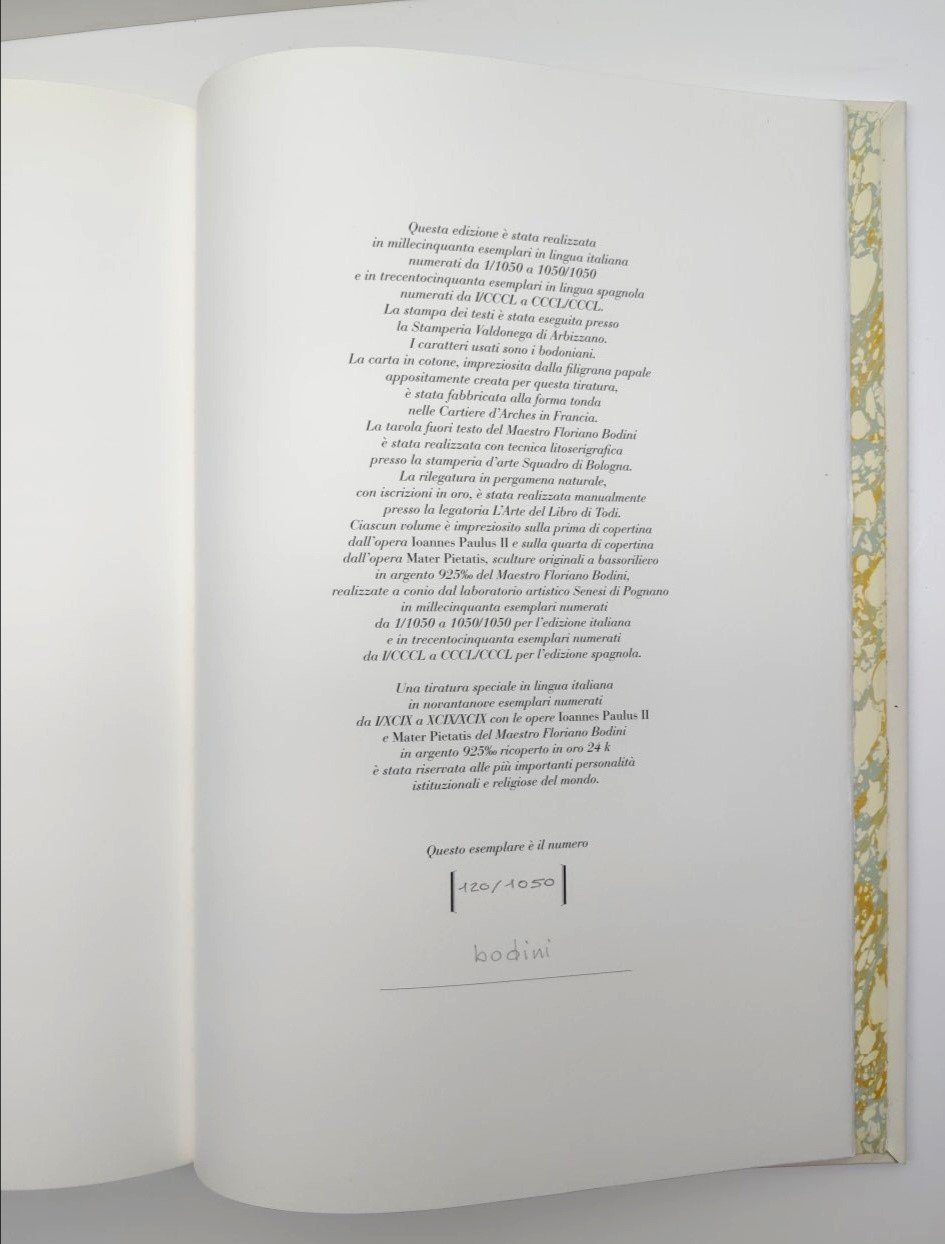 Questa edizione è stata realizzata
in millecinquanta esemplari in lingua italiana
numerati da 1/1050 a 1050/1050
e in trecentocinquanta esemplari in lingua spagnola
numerati da I/CCCL a CCCL/CCCL.
La stampa dei testi è stata eseguita presso
la Stamperia Valdonega di Arbizzano.
I caratteri usati sono i bodoniani.
La carta in cotone, impreziosita dalla filigrana papale
appositamente creata per questa tiratura,
è stata fabbricata alla forma tonda
nelle Cartiere d'Arches in Francia.
La tavola fuori testo del Maestro Floriano Bodini
è stata realizzata con tecnica litoserigrafica
presso la stamperia d'arte Squadro di Bologna.
La rilegatura in pergamena naturale,
con iscrizioni in oro, è stata realizzata manualmente
presso la legatoria L'Arte del Libro di Todi.
Ciascun volume è impreziosito sulla prima di copertina
dall'opera Ioannes Paulus II e sulla quarta di copertina
dall'opera Mater Pietatis, sculture originali a bassorilievo
in argento 925‰ del Maestro Floriano Bodini,
realizzate a conio dal laboratorio artistico Senesi di Pognano
in millecinquanta esemplari numerati
da 1/1050 a 1050/1050 per l'edizione italiana
e in trecentocinquanta esemplari numerati
da I/CCCL a CCCL/CCCL per l'edizione spagnola.
Una tiratura speciale in lingua italiana
in novantanove esemplari numerati
da I/XCIX a XCIX/XCIX con le opere Ioannes Paulus II
e Mater Pietatis del Maestro Floriano Bodini
in argento 925‰ ricoperto in oro 24 k
è stata riservata alle più importanti personalità
istituzionali e religiose del mondo.
Questo esemplare è il numero
120/1050
bodini